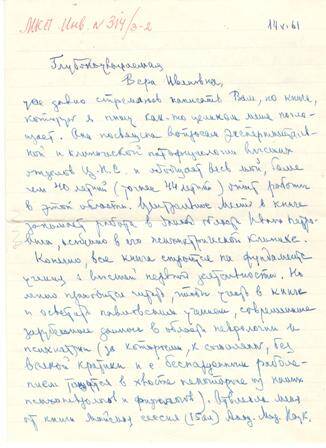 МКП Инв. N 314/3-2
14 V. 61
Глубокоуважаемая
Вера Ивановна,
уже давно стремлюсь написать Вам, но книга,
которую я пишу как-то целиком меня погло-
щает. Она посвящена вопросам эксперименталь-
ной и клинической патофизиологии высших
отделов Ц.Н.С. и обобщает весь мой, более
чем 40 летний (точнее 44 летний) опыт работы
в этой области. Центральное место в книге
занимает работа в близи Ивана Петро-
вича, особенно в его психиатрической клинике.
Конечно, вся книга строится на фундаменте
учения о высшей нервной деятельности. Но
много приходится читать, чтобы учесть в книге
и осветить павловским учением, современные
зарубежные данные в области неврологии и
психиатрии (за которыми, к сожалению, без
всякой критики и с беспардонным раболе-
пием тащатся в хвосте некоторые из наших
психоневрологов и физиологов). Отвлекла меня
от книги майская сессия (15ая) Акад. Мед. Наук.